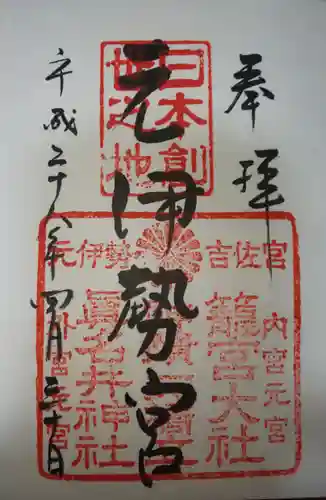 奉拝
元伊勢宮
平成二十八年四月三十日
日本創
世之地
元伊勢
吉佐宮
内宮元宮
籠宮大社
眞名井神社
外宮元宮